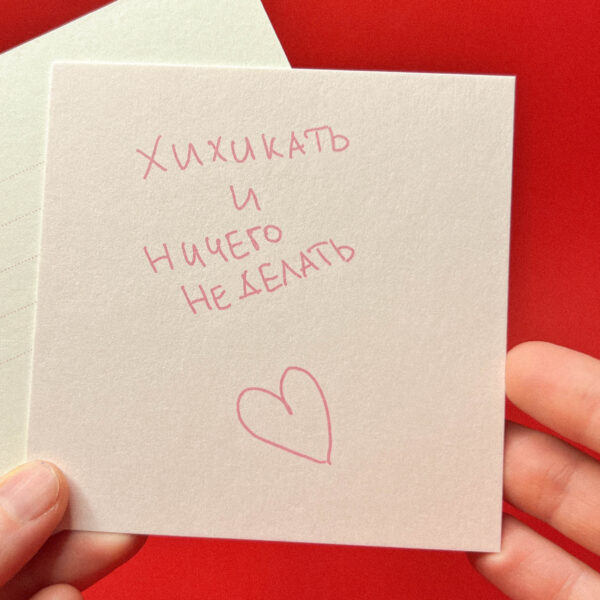 ХИХИКАТЬ
И
НИЧЕГО
НЕ ДЕЛАТЬ